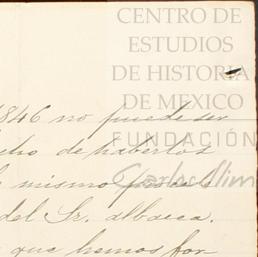 CENTRO DE
ESTUDIOS
DE HISTORIA
DE MEXICO
FUNDACIÓN
Carlos Slim
1846 no puede ser
cho de haberlos
mismo
del Sr. albacea.
que hemos for